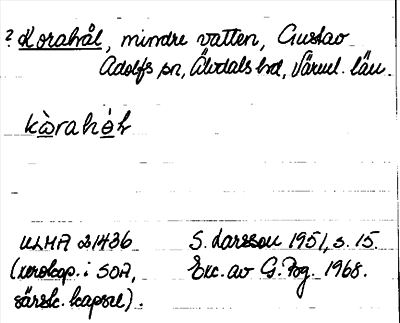 ? Korahål, mindre vatten, Gustav
Adolfs sn, Älvdals hd, Värml. län.
kòrahóḷ
ULMA 21436 S. Larsson 1951, s. 15.
(xerokop. i SOA, Exc. av G. Fog. 1968.
särsk. kapsel).